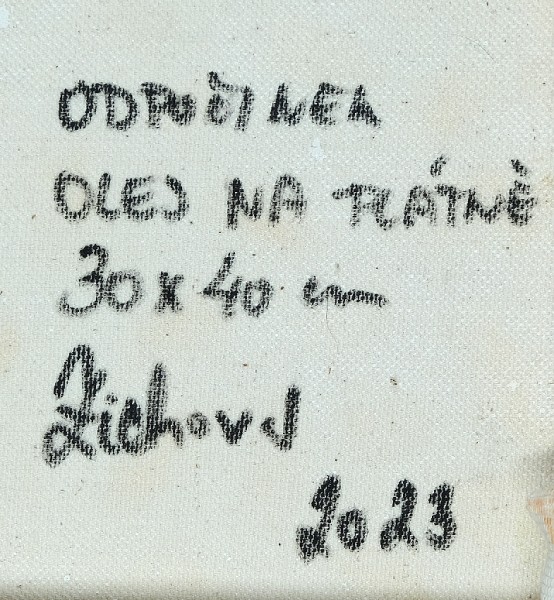 ODPOČINEK
OLEJ NA PLÁTNĚ
30x40 cm
2023